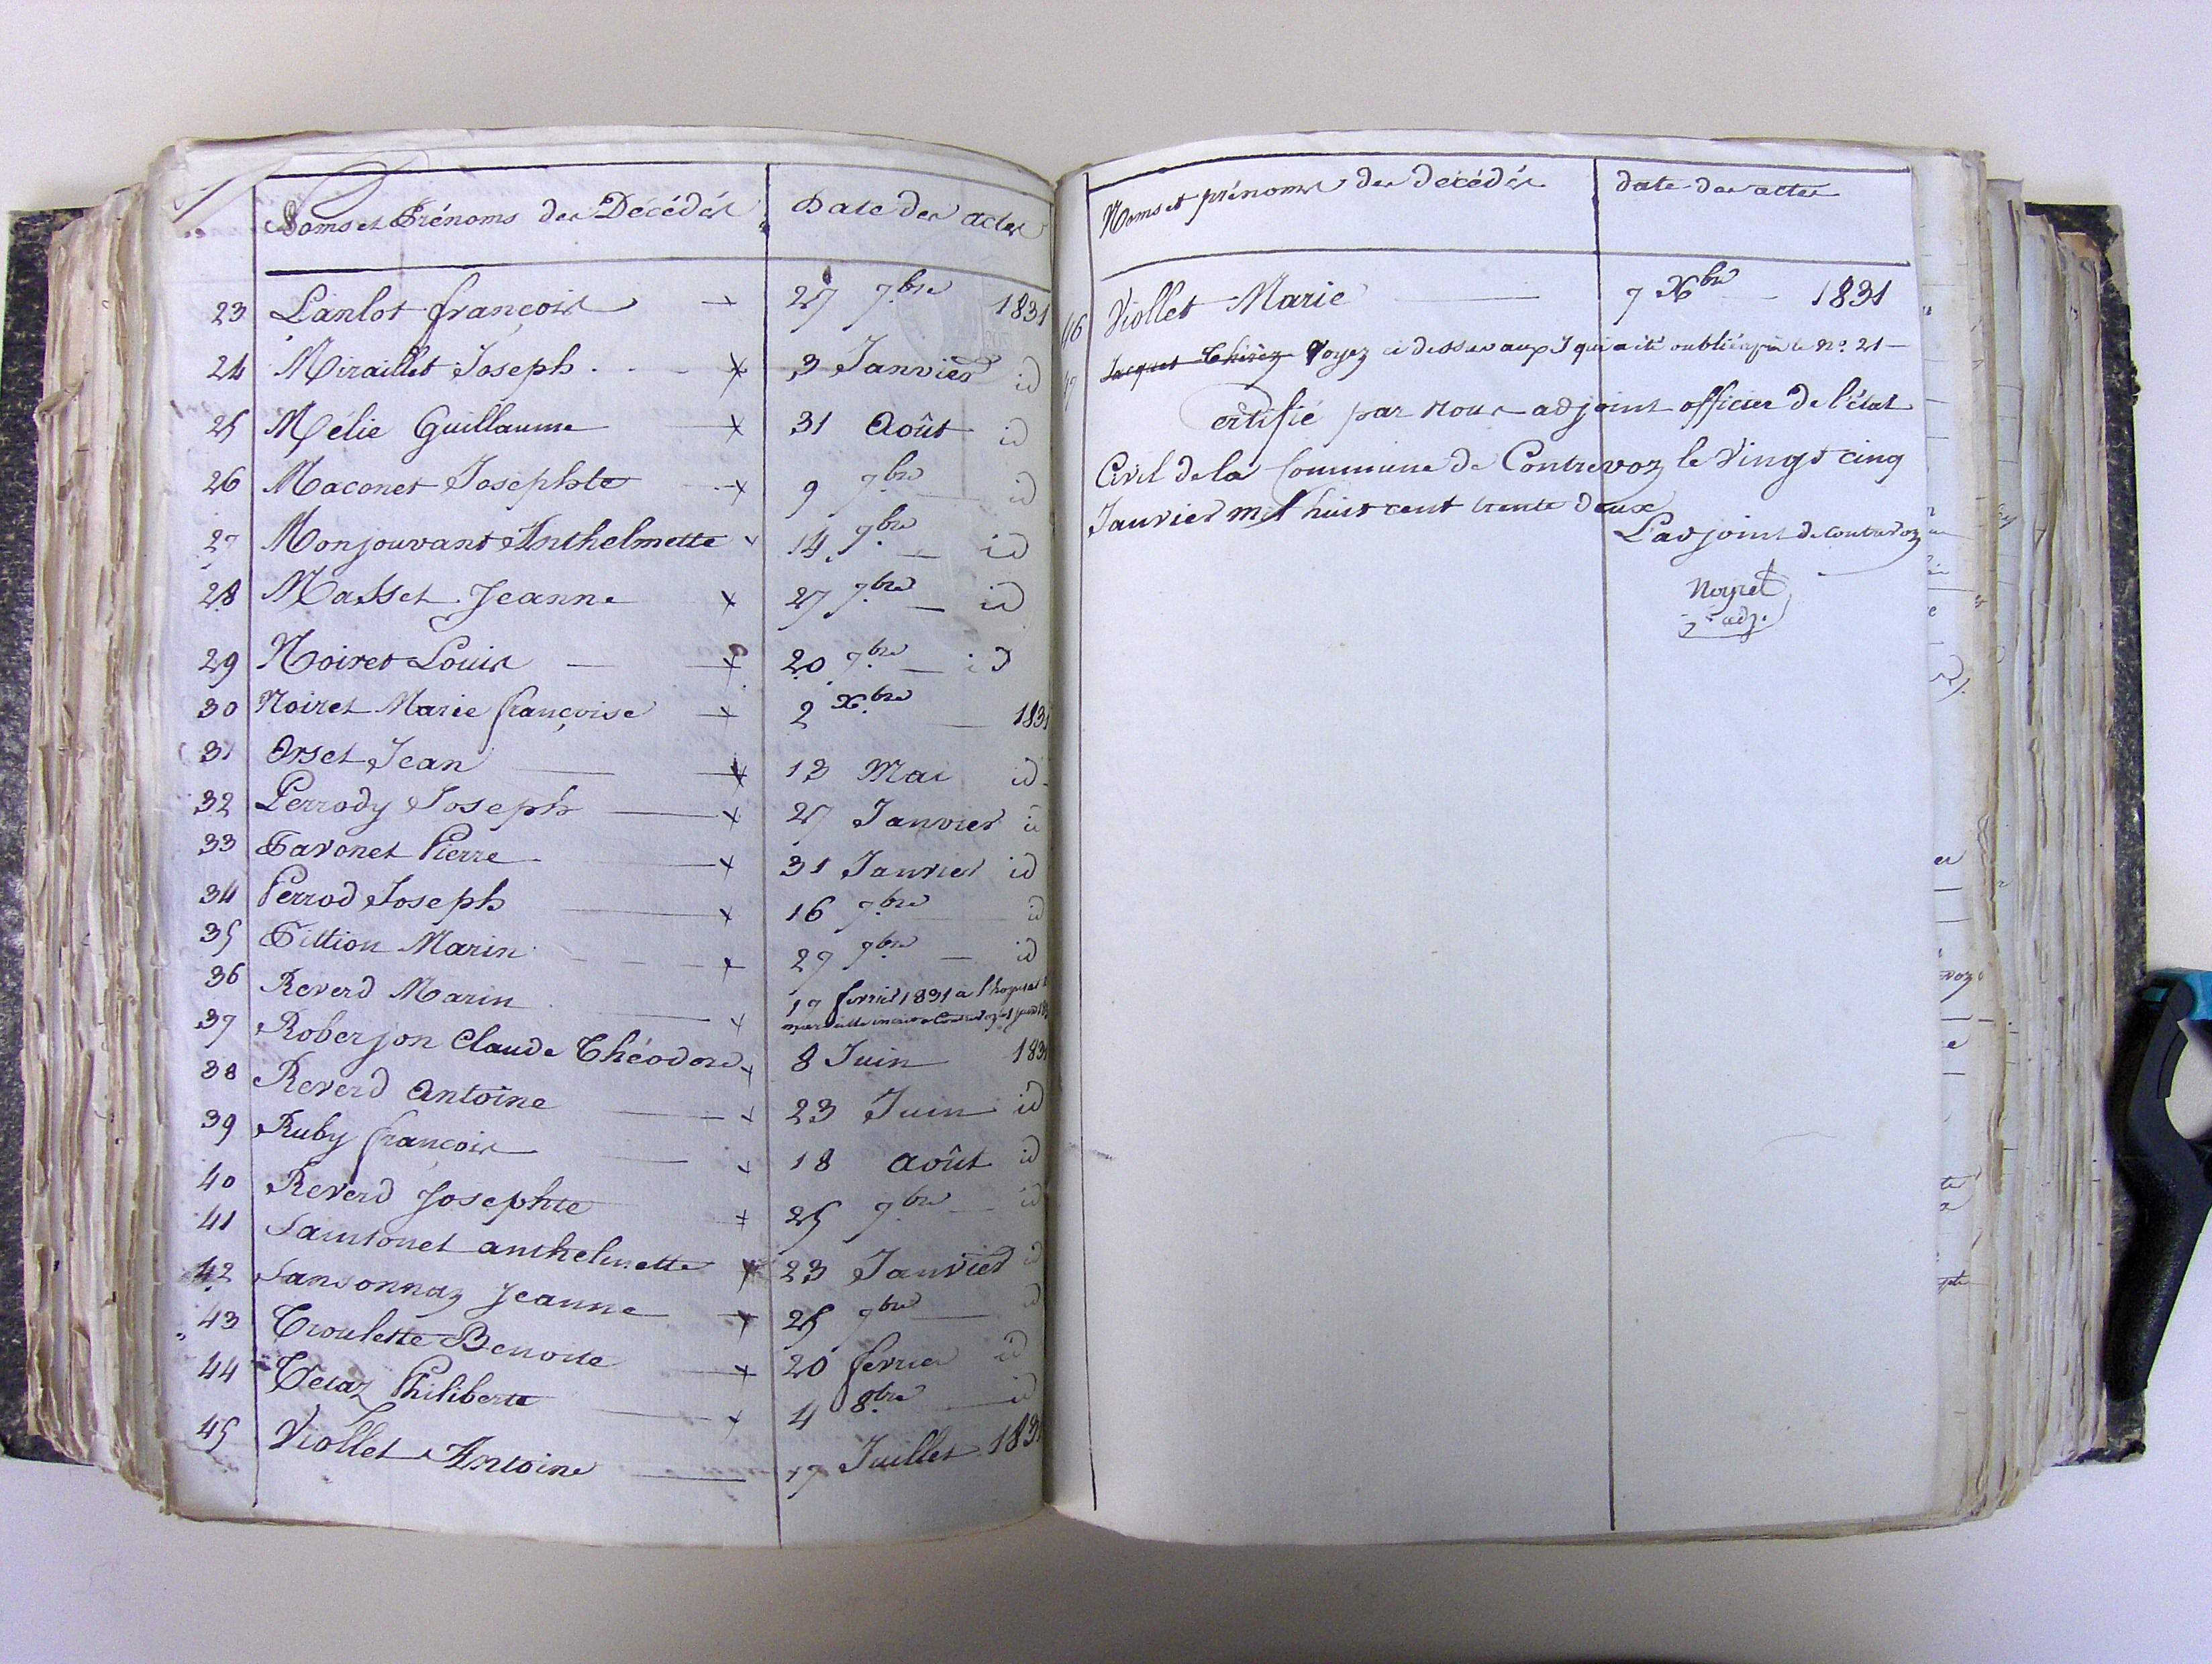 Noms et Prénoms des Décédés Date des actes
23 Lanlot françois 27 7.bre 1831
24 Miraillet Joseph 3 Janvier id
25 Mélie Guillaume 31 Août id
26 Maconet Josephte 9 7.bre id
27 Monjouvant Anthelmette 14 7.bre id
28 Masset Jeanne 27 7.bre id
29 Noiret Louis 20 7.bre id
30 Noiret Marie françoise 2 X.bre 1831
31 Orset Jean 13 Mai id
32 Perrody Joseph 27 Janvier id
33 Pavonet Pierre 31 Janvier id
34 Perrod Joseph 16 7.bre id
35 Pittion Marin 29 7.bre id
36 Reverd Marin 19 fevrier 1831 a l'hopital
37 Roberjon Claude Théodore 8 Juin 1831
38 Reverd Antoine 23 Juin id
39 Ruby françois 18 août id
40 Reverd Josephte 25 7bre id
41 Saintonet anthelmette 23 Janvier id
42 Sansonnaz Jeanne 25 7bre id
43 Troulette Benoite 20 fevrier id
44 Tetaz Philiberte 4 8.bre id
45 Viollet Antoine 19 Juillet 1831
Noms et prénoms des décédés date des actes
46 Viollet Marie 7 Xbre 1831
47 Jacquet Voyez ci dessus aux J qui a été oublié après le No. 21
Certifié par nous adjoint officier de l'état
Civil de la Commune de Contrevoz le Vingt cinq
Janvier mil huit cent trente deux
L'adjoint de Contrevoz
Noiret
adj.